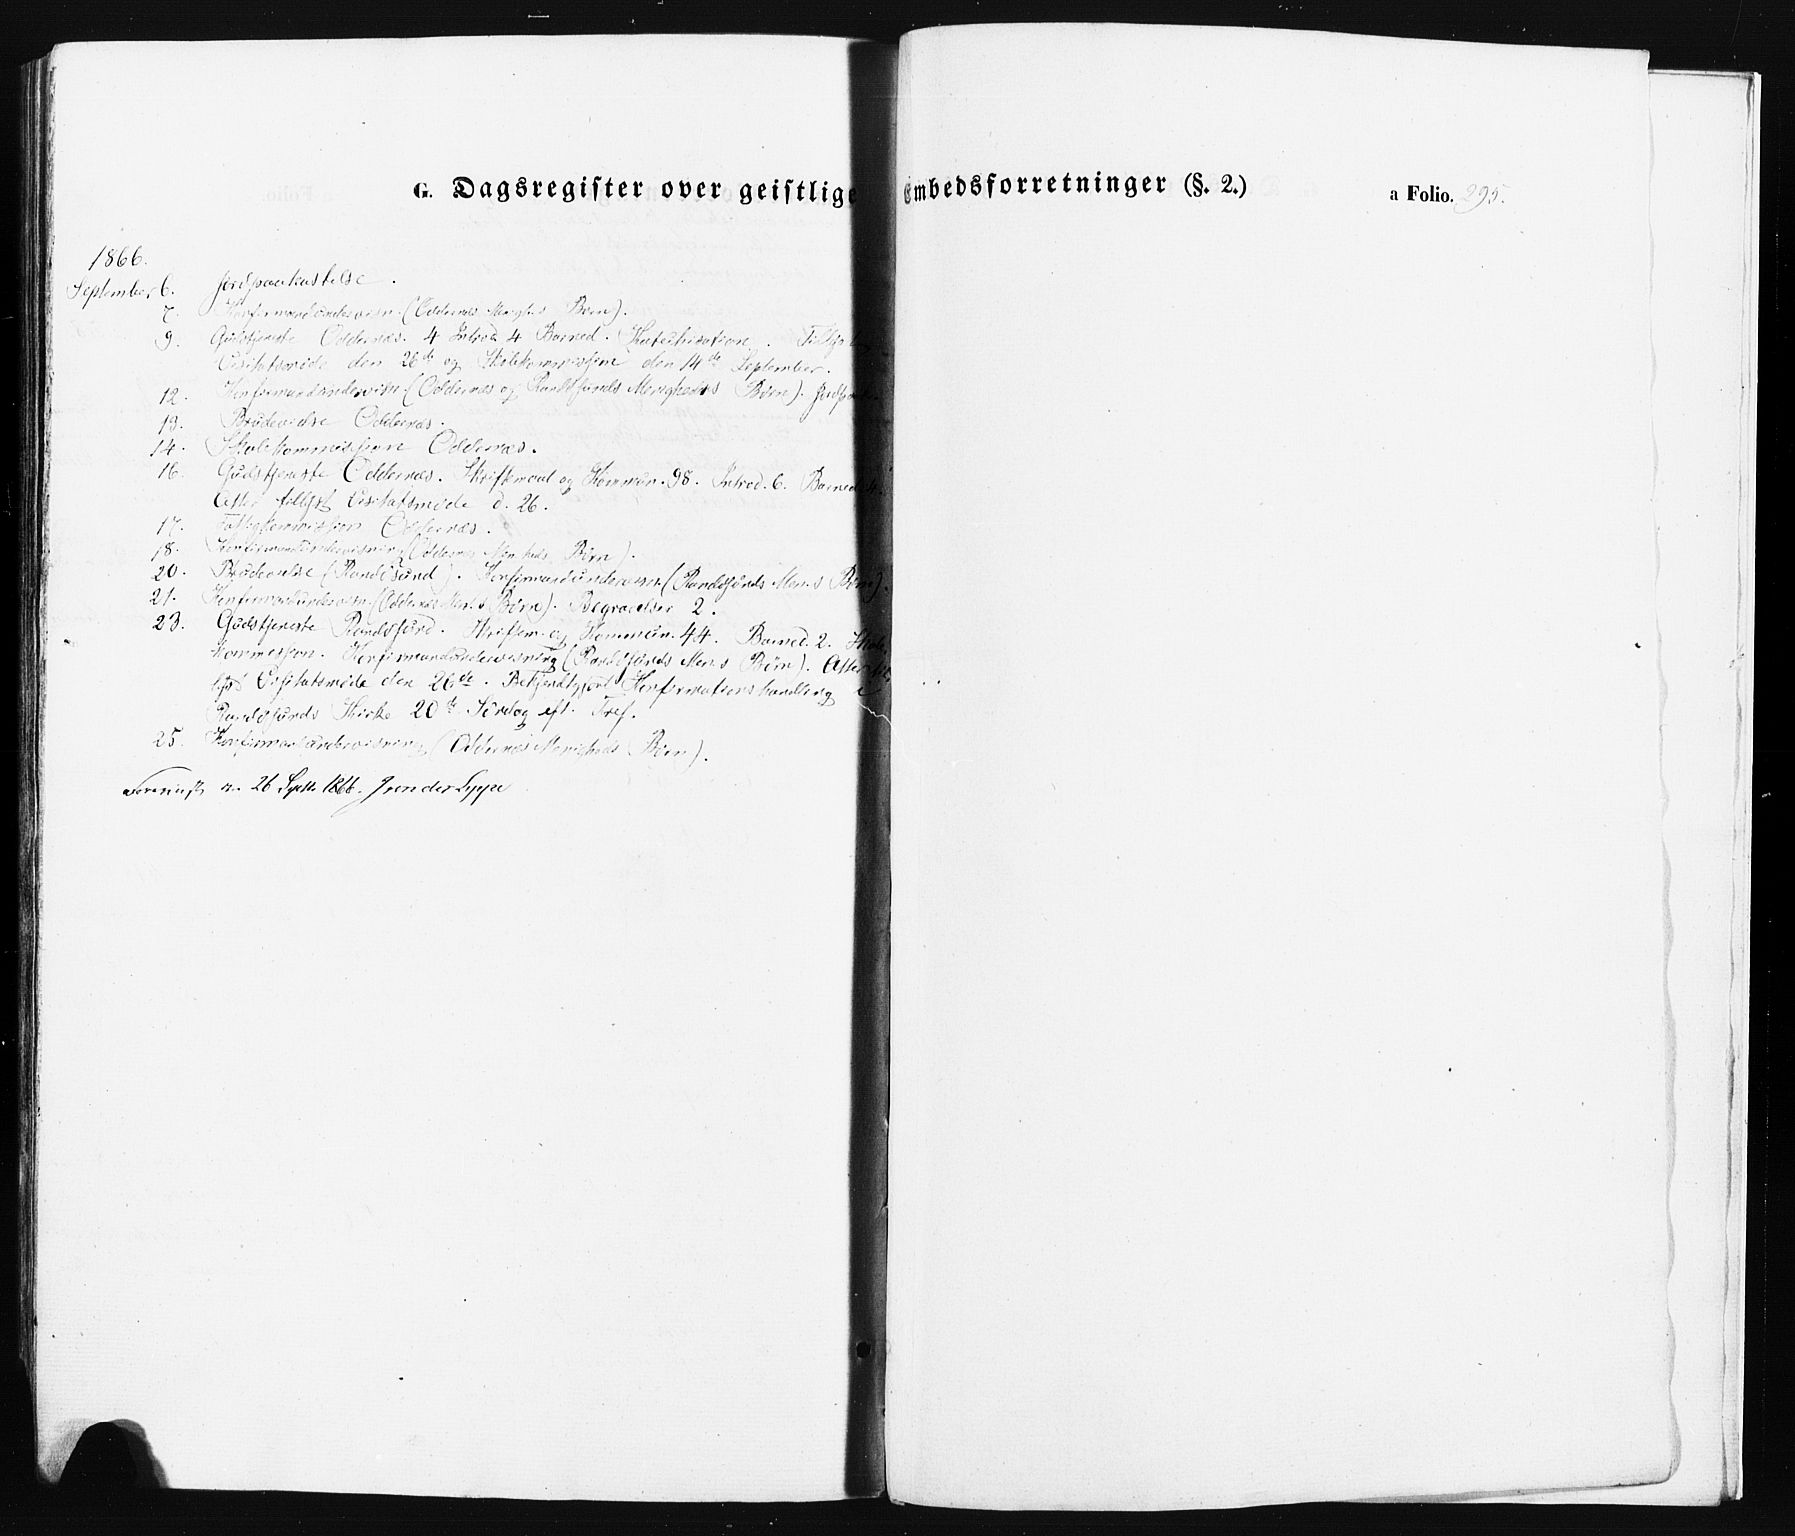 G. Dagsregister over geistlige Embedsforretninger (§. 2.) a Folio. 295.
1866.
September 6. Jordpaakastelse.
7. Konfirmandundervisn. (Oddernæs Menigh.s Børn).
9. Gudstjeneste Oddernæs. 4 Introd. 4 Barned. Katechisation.
Visitatsmøde den 26de og Skolekommission den 14de September.
12. Konfirmandundervisn. (Oddernæs og Randøsunds Menigheders Børn).
13. Brudevielse Oddernæs.
14. Skolekommission Oddernæs.
16. Gudstjeneste Oddernæs. Skriftemaal og Kommun. 98. Introd. 6. Barned. 4.
Atter tillyst Visitatsmøde d. 26.
17. Fattigkommission Oddernæs.
18. Konfirmandundervisning (Oddernæs Menigheds Børn).
20. Brudevielse (Randøsund). Konfirmandundervisn. (Randøsunds Men.s Børn).
21. Konfirmandundervisn. (Oddernæs Men.s Børn). Begravelser 2.
23. Gudstjeneste Randøsund. Skriftem. og Kommun. 44. Barned. 2. Skole
kommission. Konfirmandundervisning (Randøsunds Men.s Børn). Atter til
lyst Visitatsmøde den 26de. Bekjendtgjort Konfirmationshandling i
Randøsunds Kirke 20de Søndag eft. Tref.
25. Konfirmandundervisning (Oddernæs Menigheds Børn).
26 Septb. 1866. J von der Lippe